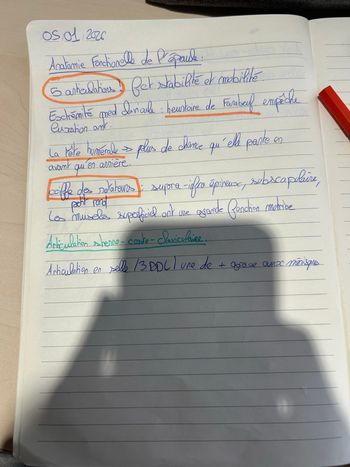 OS 01 2026
Anatomie fonctionelle de l'épaule :
5 articulations ! Bcp stabilité et mobilité
Extrémité claviculaire : heurtoire de Farabeuf empêche
luxation ant.
La tête humérale → plus de chance qu'elle parte en
avant qu'en arrière.
coiffe des rotateurs : supra-infra épineux, subscapulaire,
petit rond
Les muscles superficiel ont une grande fonction motrice
Articulation sterno-costo-claviculaire.
Articulation en selle (3DDL) une de + avec ménisque